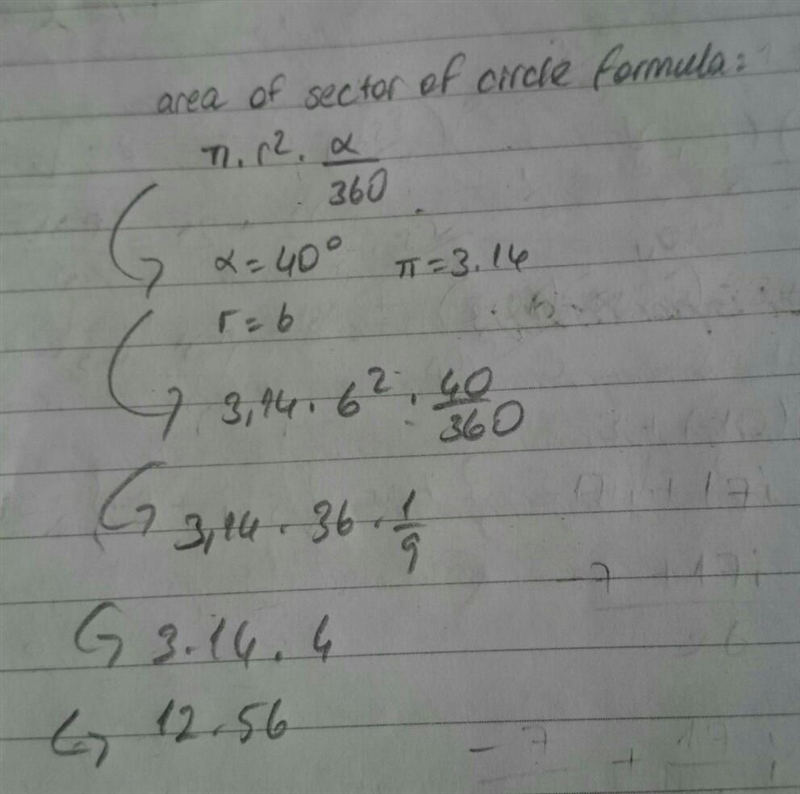 area of sector of circle formula:
π . r² . α/360
α = 40° π = 3.14
r = 6
3,14 . 6² . 40/360
3,14 . 36 . 1/9
3.14 . 4
12.56
17i
-7 + 17i
-7 + 17i